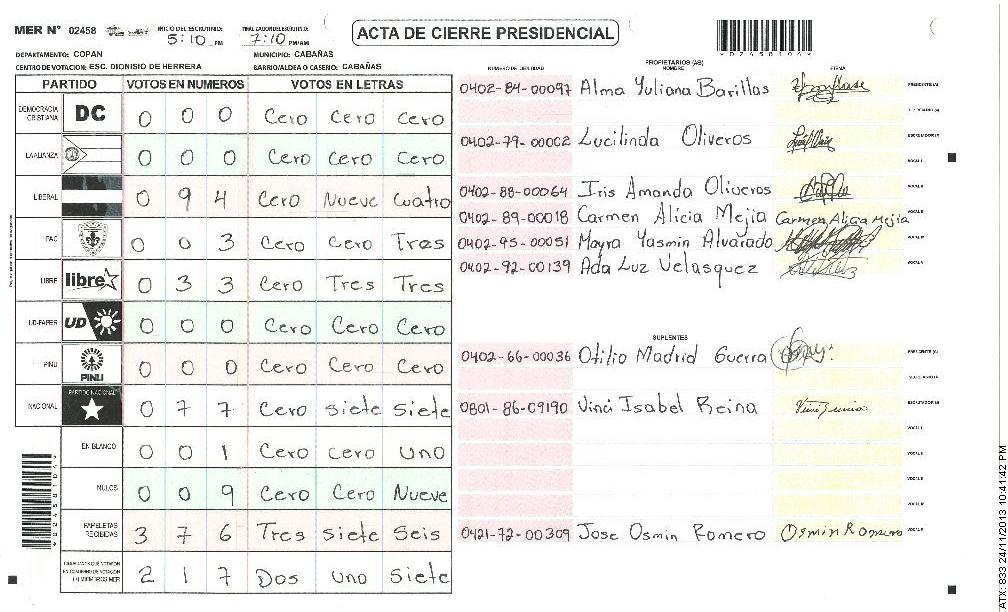 MER N° 02458 INICIO DEL ESCRUTINIO: 5:10 PM FINALIZACION DEL ESCRUTINIO: 7:10 PM/AM
ACTA DE CIERRE PRESIDENCIAL
DEPARTAMENTO: COPAN MUNICIPIO: CABAÑAS
CENTRO DE VOTACION: ESC. DIONISIO DE HERRERA BARRIO/ALDEA O CASERIO: CABAÑAS
PARTIDO VOTOS EN NUMEROS VOTOS EN LETRAS
DEMOCRACIA CRISTIANA DC 0 0 0 Cero Cero Cero
LA ALIANZA 0 0 0 Cero Cero Cero
LIBERAL 0 9 4 Cero Nueve Cuatro
FAC 0 0 3 Cero Cero Tres
LIBRE libre 0 3 3 Cero Tres Tres
UD-FAPER UD 0 0 0 Cero Cero Cero
PINU PINU 0 0 0 Cero Cero Cero
NACIONAL PARTIDO NACIONAL 0 7 7 Cero siete siete
EN BLANCO 0 0 1 Cero Cero uno
NULOS 0 0 9 Cero Cero Nueve
PAPELETAS RECIBIDAS 3 7 6 Tres siete Seis
2 1 7 Dos uno Siete
NUMERO DE IDENTIDAD PROPIETARIOS (AS) NOMBRE FIRMA
0402-84-00097 Alma Yuliana Barillas PRESIDENTE (A)
SECRETARIO (A)
0402-79-00002 Lucilinda Oliveros ESCRUTADOR (A)
VOCAL I
0402-88-00064 Iris Amanda Oliveros
0402-89-00018 Carmen Alicia Mejia Carmen Alicia Mejia
0402-95-00051 Mayra Yasmin Alvarado
0402-92-00139 Ada Luz Velasquez
SUPLENTES
0402-66-00036 Otilio Madrid Guerra PRESIDENTE (A)
SECRETARIO (A)
0801-86-09190 Vinci Isabel Reina ESCRUTADOR (A)
VOCAL I
0421-72-00309 Jose Osmin Romero Osmin Romero
*02458104*
ATX: 833 24/11/2013 10:41:42 PM